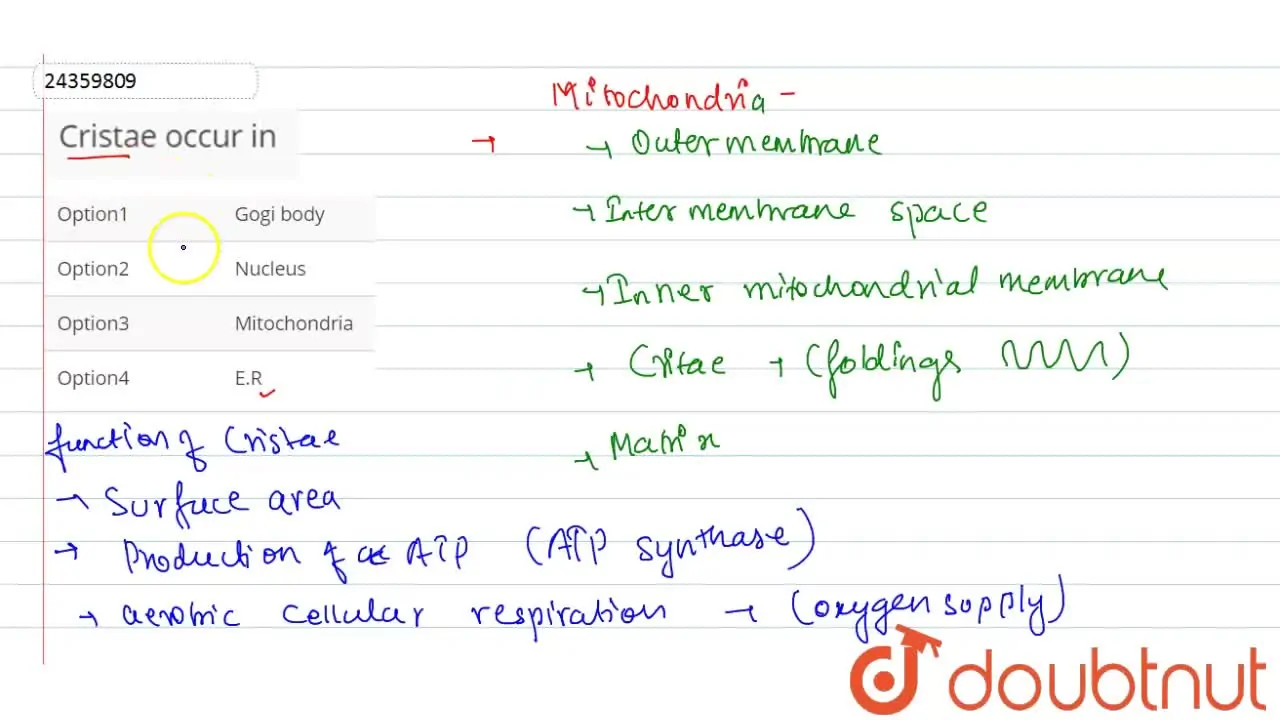 24359809
Cristae occur in
Option1 Gogi body
Option2 Nucleus
Option3 Mitochondria
Option4 E.R
Mitochondria -
→ → Outer membrane
→ Inter membrane space
→ Inner mitochondrial membrane
→ Critae → (foldings
→ Matrix
function of Cristae
→ Surface area
→ Production of ATP (ATP synthase)
→ aerobic cellular respiration → (oxygen supply)
doubtnut